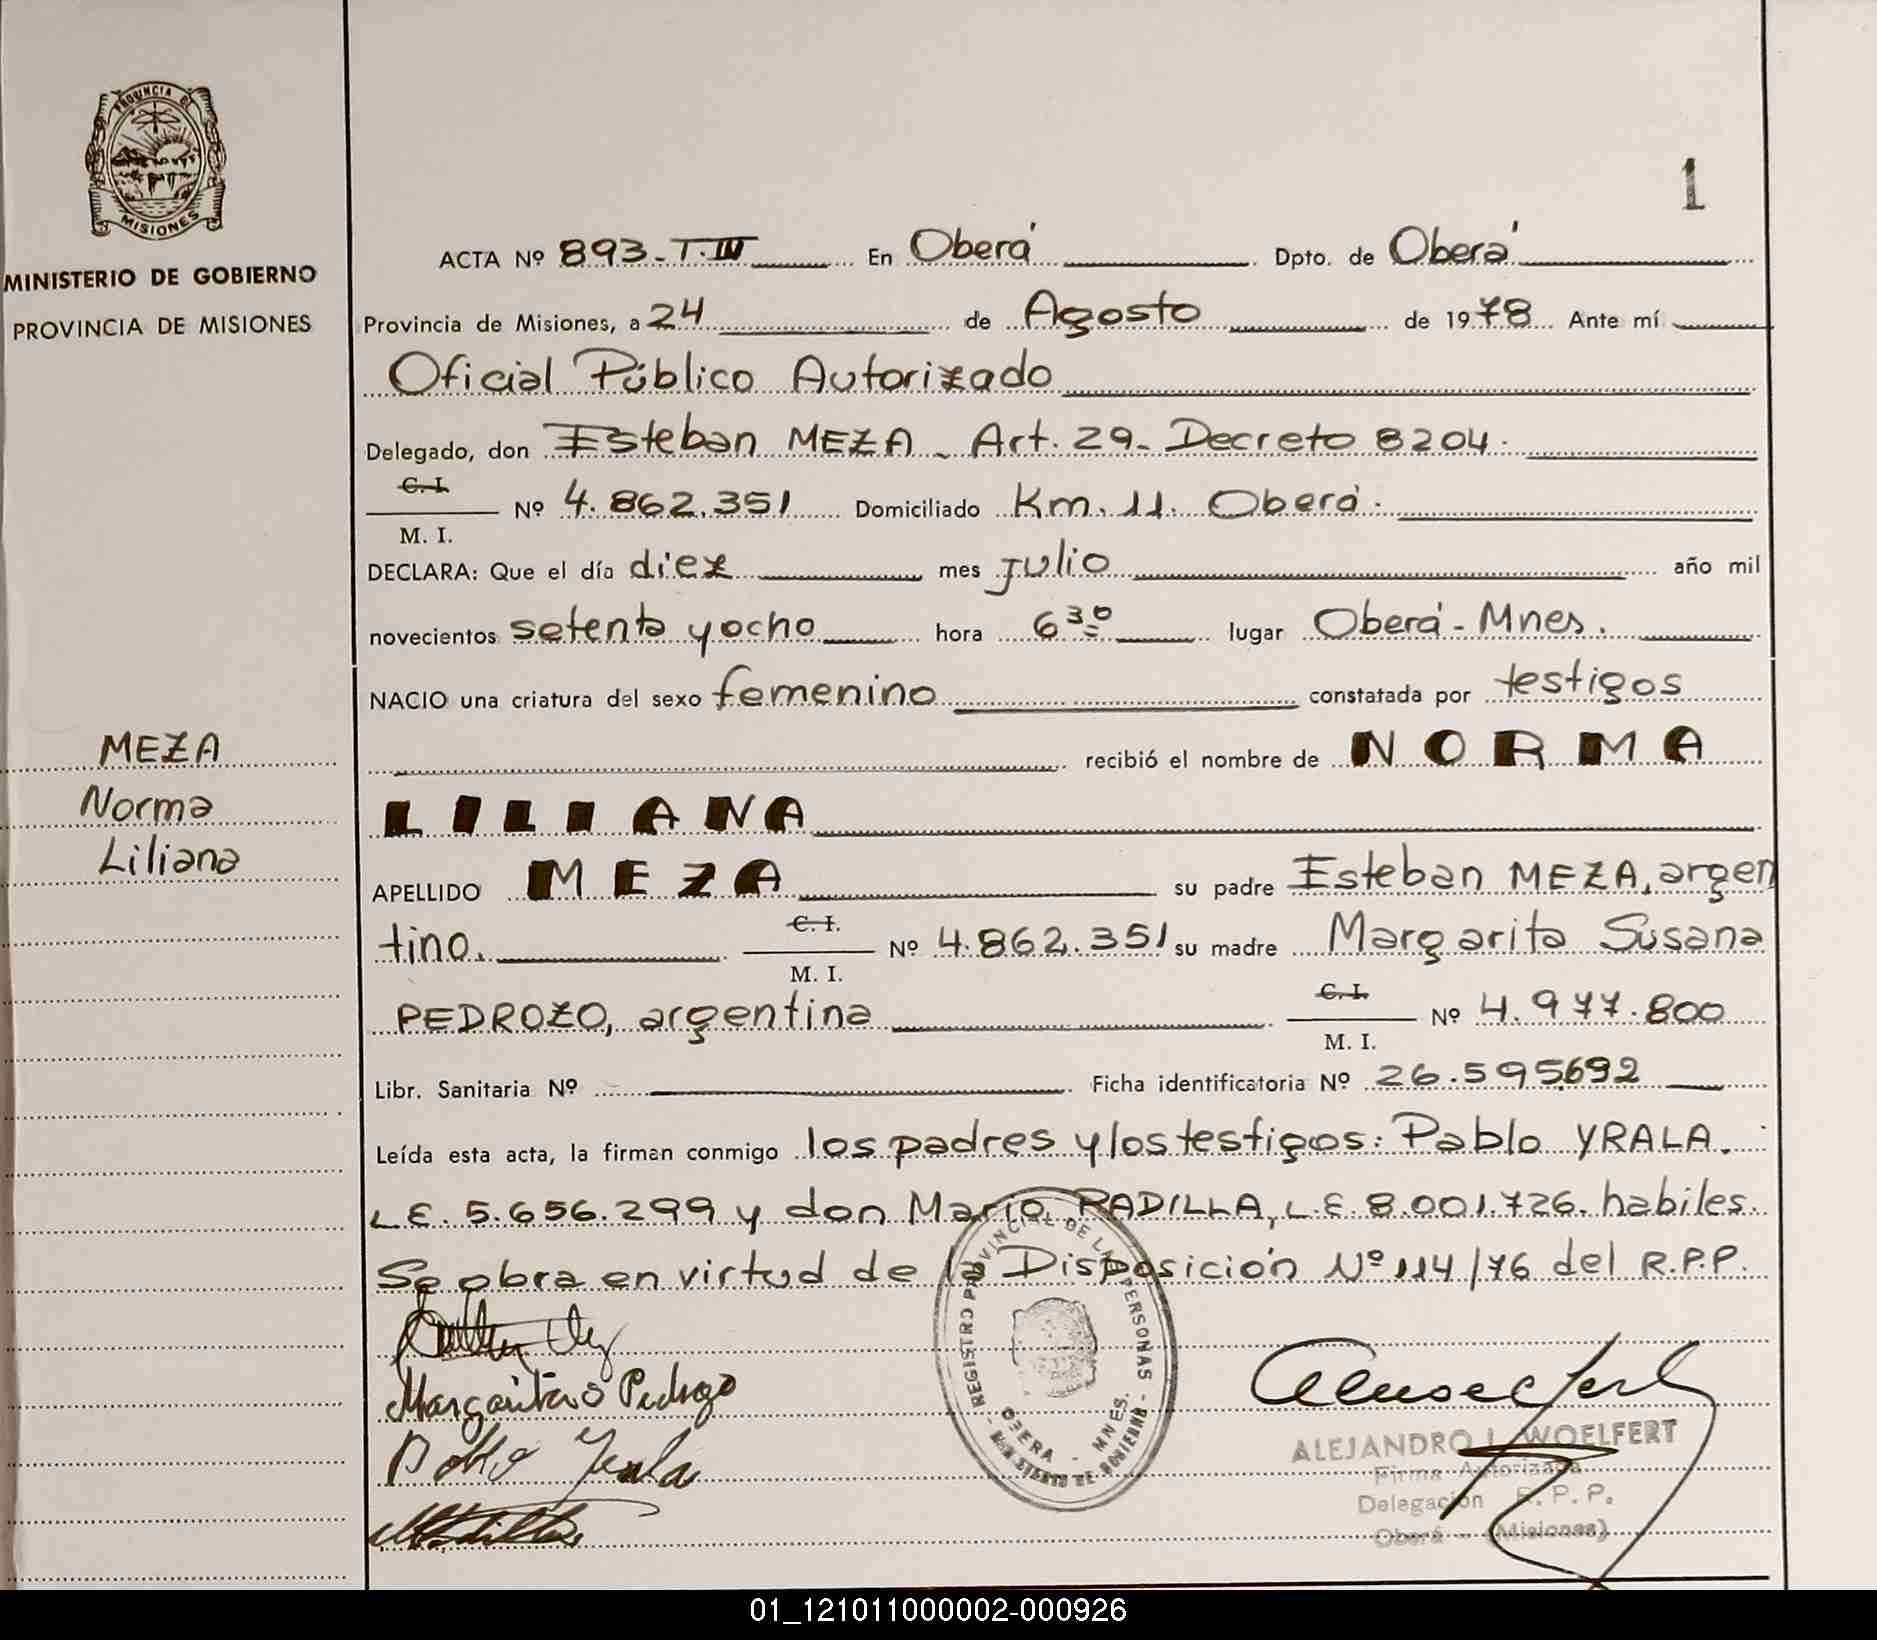 PROVINCIA DE
MISIONES
MINISTERIO DE GOBIERNO
PROVINCIA DE MISIONES
MEZA
Norma
Liliana
1
ACTA Nº 893-T.IV En Oberá Dpto. de Oberá
Provincia de Misiones, a 24 de Agosto de 1978 Ante mí
Oficial Público Autorizado
Delegado, don Esteban MEZA - Art. 29- Decreto 8204.
C. I.
Nº 4.862.351 Domiciliado Km. 11. Oberá.
M. I.
DECLARA: Que el día diez mes julio año mil
novecientos setenta y ocho hora 6 30 lugar Oberá - Mnes.
NACIO una criatura del sexo femenino constatada por testigos
recibió el nombre de NORMA
LILIANA
APELLIDO MEZA su padre Esteban MEZA, argen
tino. C. I. M. I. Nº 4.862.351 su madre Margarita Susana
PEDROZO, argentina C. I. M. I. Nº 4.977.800
Libr. Sanitaria Nº Ficha identificatoria Nº 26.595692
Leída esta acta, la firman conmigo los padres y los testigos: Pablo YRALA.
L.E. 5.656.299 y don Mario PADILLA, L.E. 8.001.726. habiles.
Se obra en virtud de la Disposición Nº 114/76 del R.P.P.
Pablo Yrala
REGISTRO PROVINCIAL DE LAS PERSONAS - MINISTERIO DE GOBIERNO -
OBERA - MNES.
ALEJANDRO L. WOELFERT
Firma Autorizada
Delegación R. P. P.
Oberá - (Misiones)
01_121011000002-000926